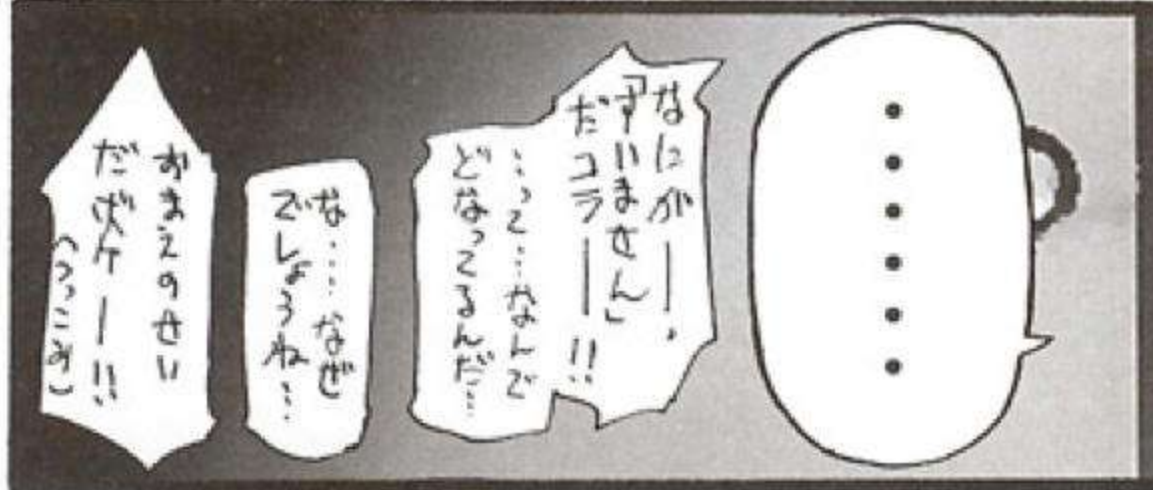 ・・・・・・
なにがー、
「すいません」
だコラーー!!
…って…なんで
どなってるんだ…
な……なぜ
でしょうね…
おまえのせい
だボケーー!!
(つっこみ)